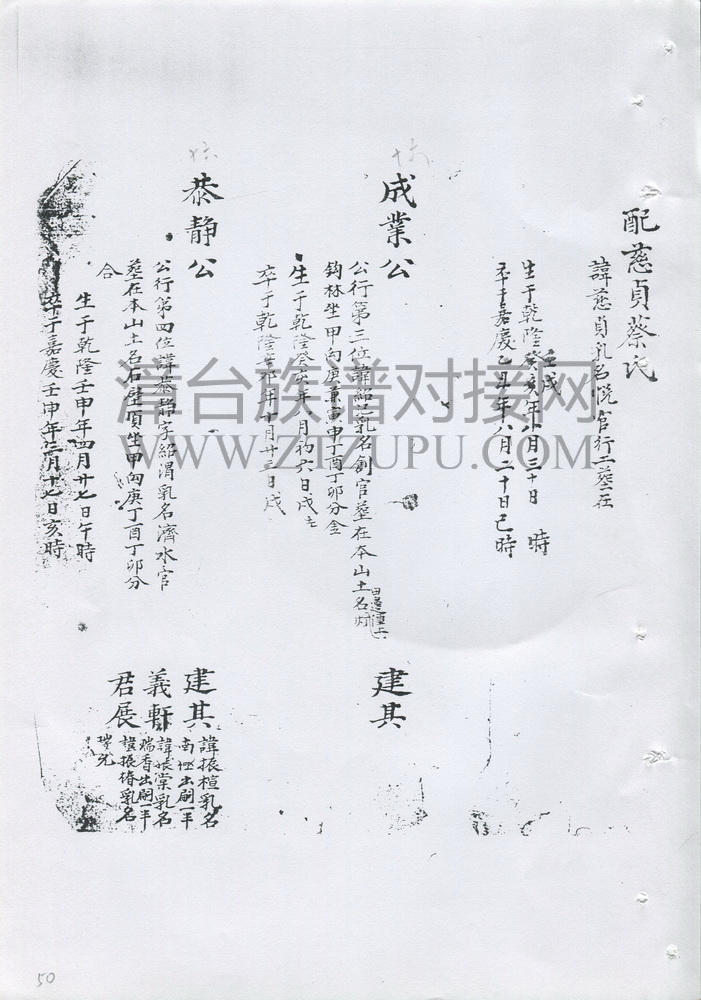 配慈貞蔡氏
諱慈貞乳名悅官行二塟在
壬戌
生于乾隆癸亥年八月三十日 時
卒于嘉慶乙丑年八月二十日巳時
成業公
公行第三位諱紹乳名創官塟在本山土名
鈞林坐甲向庚兼寅申丁酉丁卯分金
生于乾隆癸亥年八月初六日戌
卒于乾隆 年十月廿三日戌
建其
恭靜公
公行第四位諱恭靜字紹渭乳名濟水官
塟在本山土名石壁頂坐甲向庚丁酉丁卯分
合
生于乾隆壬申年四月廿七日午時
卒于嘉慶壬申年二月十七日亥時
建其
諱振楦乳名
南 出嗣一半
義軒
諱振棠乳名
瑞香出嗣一半
君展
諱振椿乳名
瑞光
淸台族谱对接网
WWW.ZTZUPU.COM
50